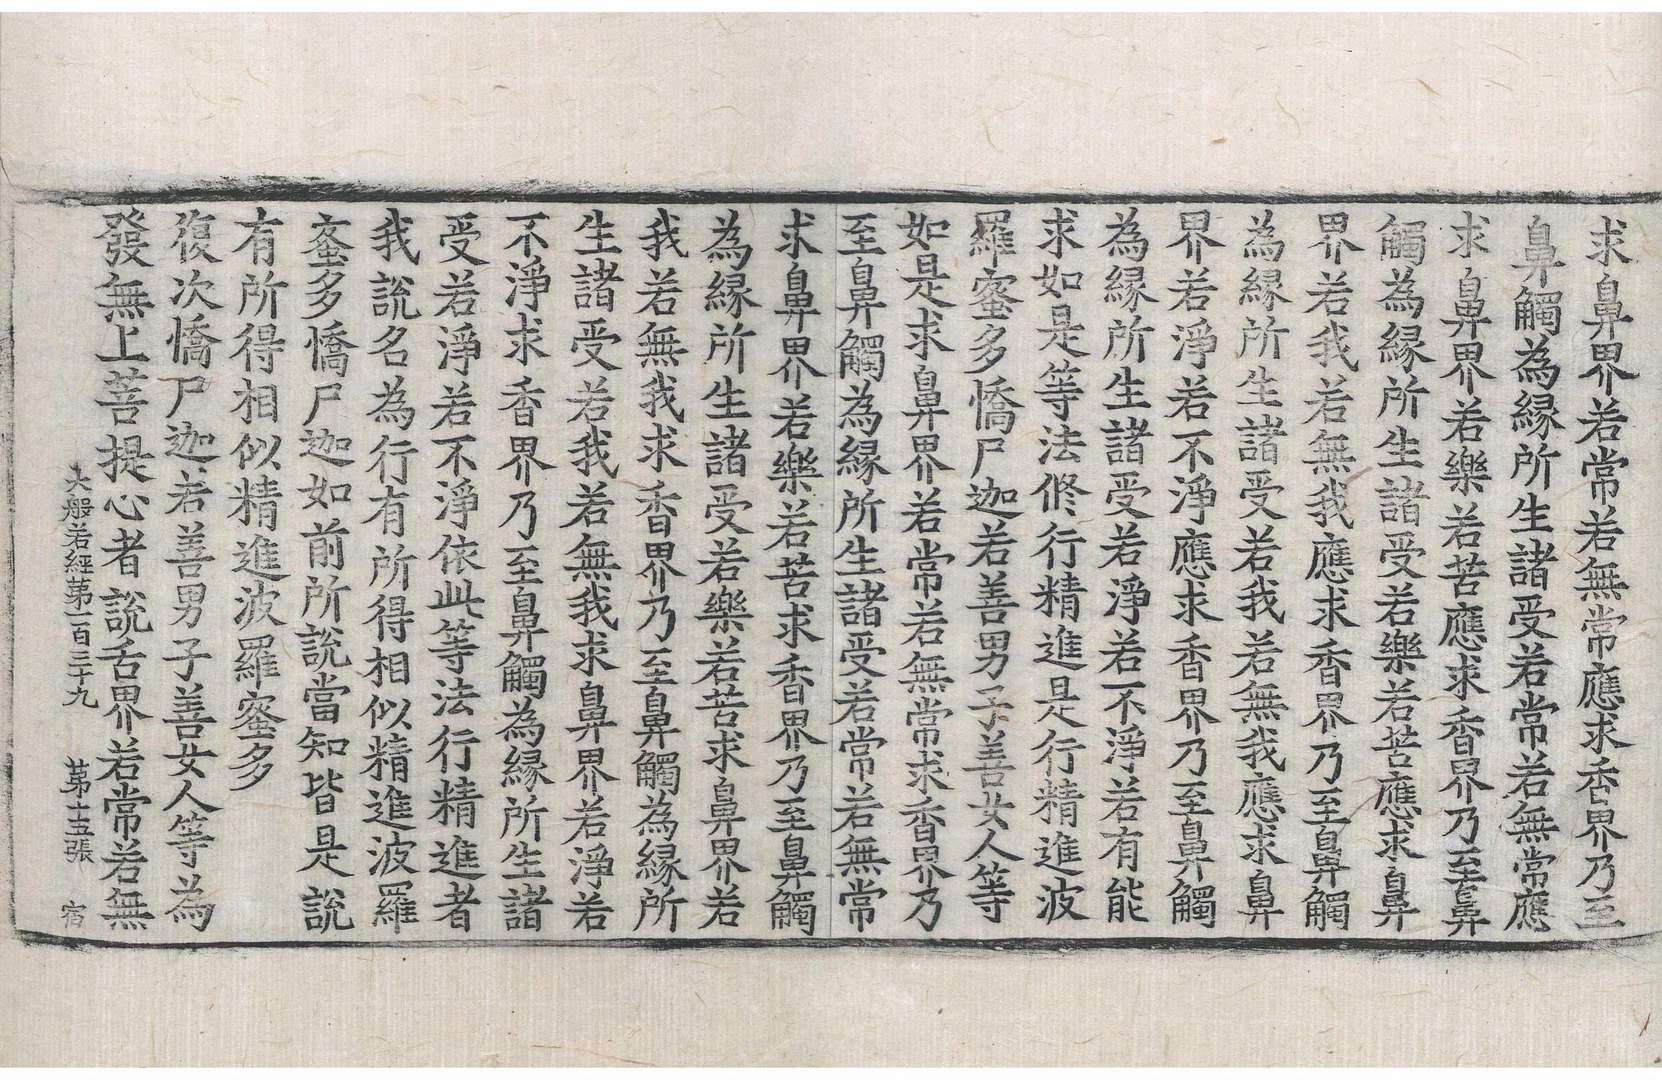 求鼻界若常若無常應求香界乃至
鼻觸為緣所生諸受若常若無常應
求鼻界若樂若苦應求香界乃至鼻
觸為緣所生諸受若樂若苦應求鼻
界若我若無我應求香界乃至鼻觸
為緣所生諸受若我若無我應求鼻
界若淨若不淨應求香界乃至鼻觸
為緣所生諸受若淨若不淨若有能
求如是等法修行精進是行精進波
羅蜜多憍尸迦若善男子善女人等
如是求鼻界若常若無常求香界乃
至鼻觸為緣所生諸受若常若無常
求鼻界若樂若苦求香界乃至鼻觸
為緣所生諸受若樂若苦求鼻界若
我若無我求香界乃至鼻觸為緣所
生諸受若我若無我求鼻界若淨若
不淨求香界乃至鼻觸為緣所生諸
受若淨若不淨依此等法行精進者
我說名為行有所得相似精進波羅
蜜多憍尸迦如前所說當知皆是說
有所得相似精進波羅蜜多
復次憍尸迦若善男子善女人等為
發無上菩提心者說舌界若常若無
大般若經第一百三十九　第十五張　宿